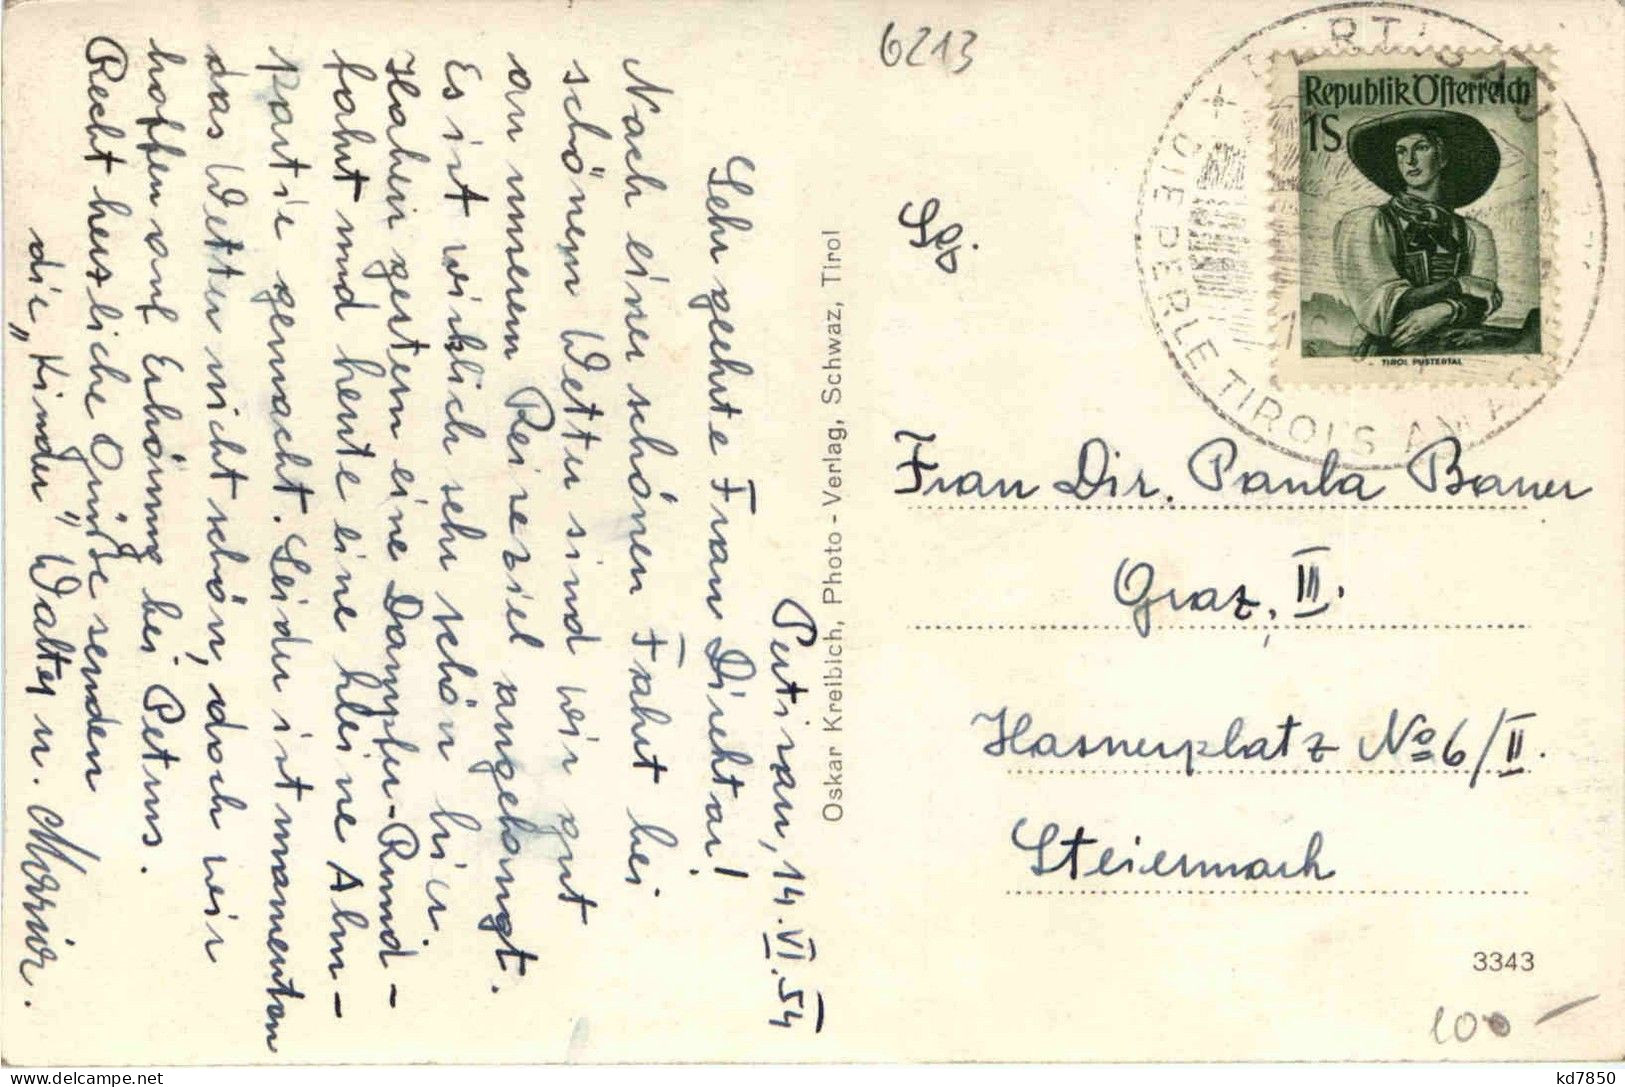 Pertisau, 14.VI.54
Sehr geehrte Frau Direktor!
Nach einer schönen Fahrt bei
schönem Wetter sind wir gut
an unserem Reiseziel angelangt.
Es ist wirklich sehr schön hier.
Haben gestern eine Dampfer-Rund-
fahrt und heute eine kleine Alm-
partie gemacht. Leider ist momentan
das Wetter nicht schön, doch wir
hoffen auf Erholung bei Petrus.
Recht herzliche Grüße senden
die „Kinder" Walter u. Maria.
Oskar Kreibich, Photo-Verlag, Schwaz, Tirol
6213
PERTISAU
DIE PERLE TIROLS AM
Republik Österreich
1S
TIROL PUSTERTAL
Frau Dir. Paula Bauer
Graz, III.
Hasnerplatz No 6/II.
Steiermark
3343
100
kd7850